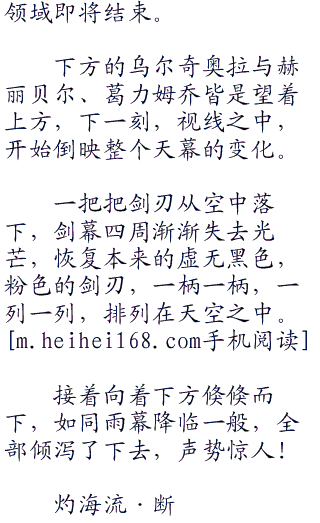 领域即将结束。
下方的乌尔奇奥拉与赫
丽贝尔、葛力姆乔皆是望着
上方，下一刻，视线之中，
开始倒映整个天幕的变化。
一把把剑刃从空中落
下，剑幕四周渐渐失去光
芒，恢复本来的虚无黑色，
粉色的剑刃，一柄一柄，一
列一列，排列在天空之中。
[m.heihei168.com手机阅读]
接着向着下方倏倏而
下，如同雨幕降临一般，全
部倾泻了下去，声势惊人！
灼海流·断